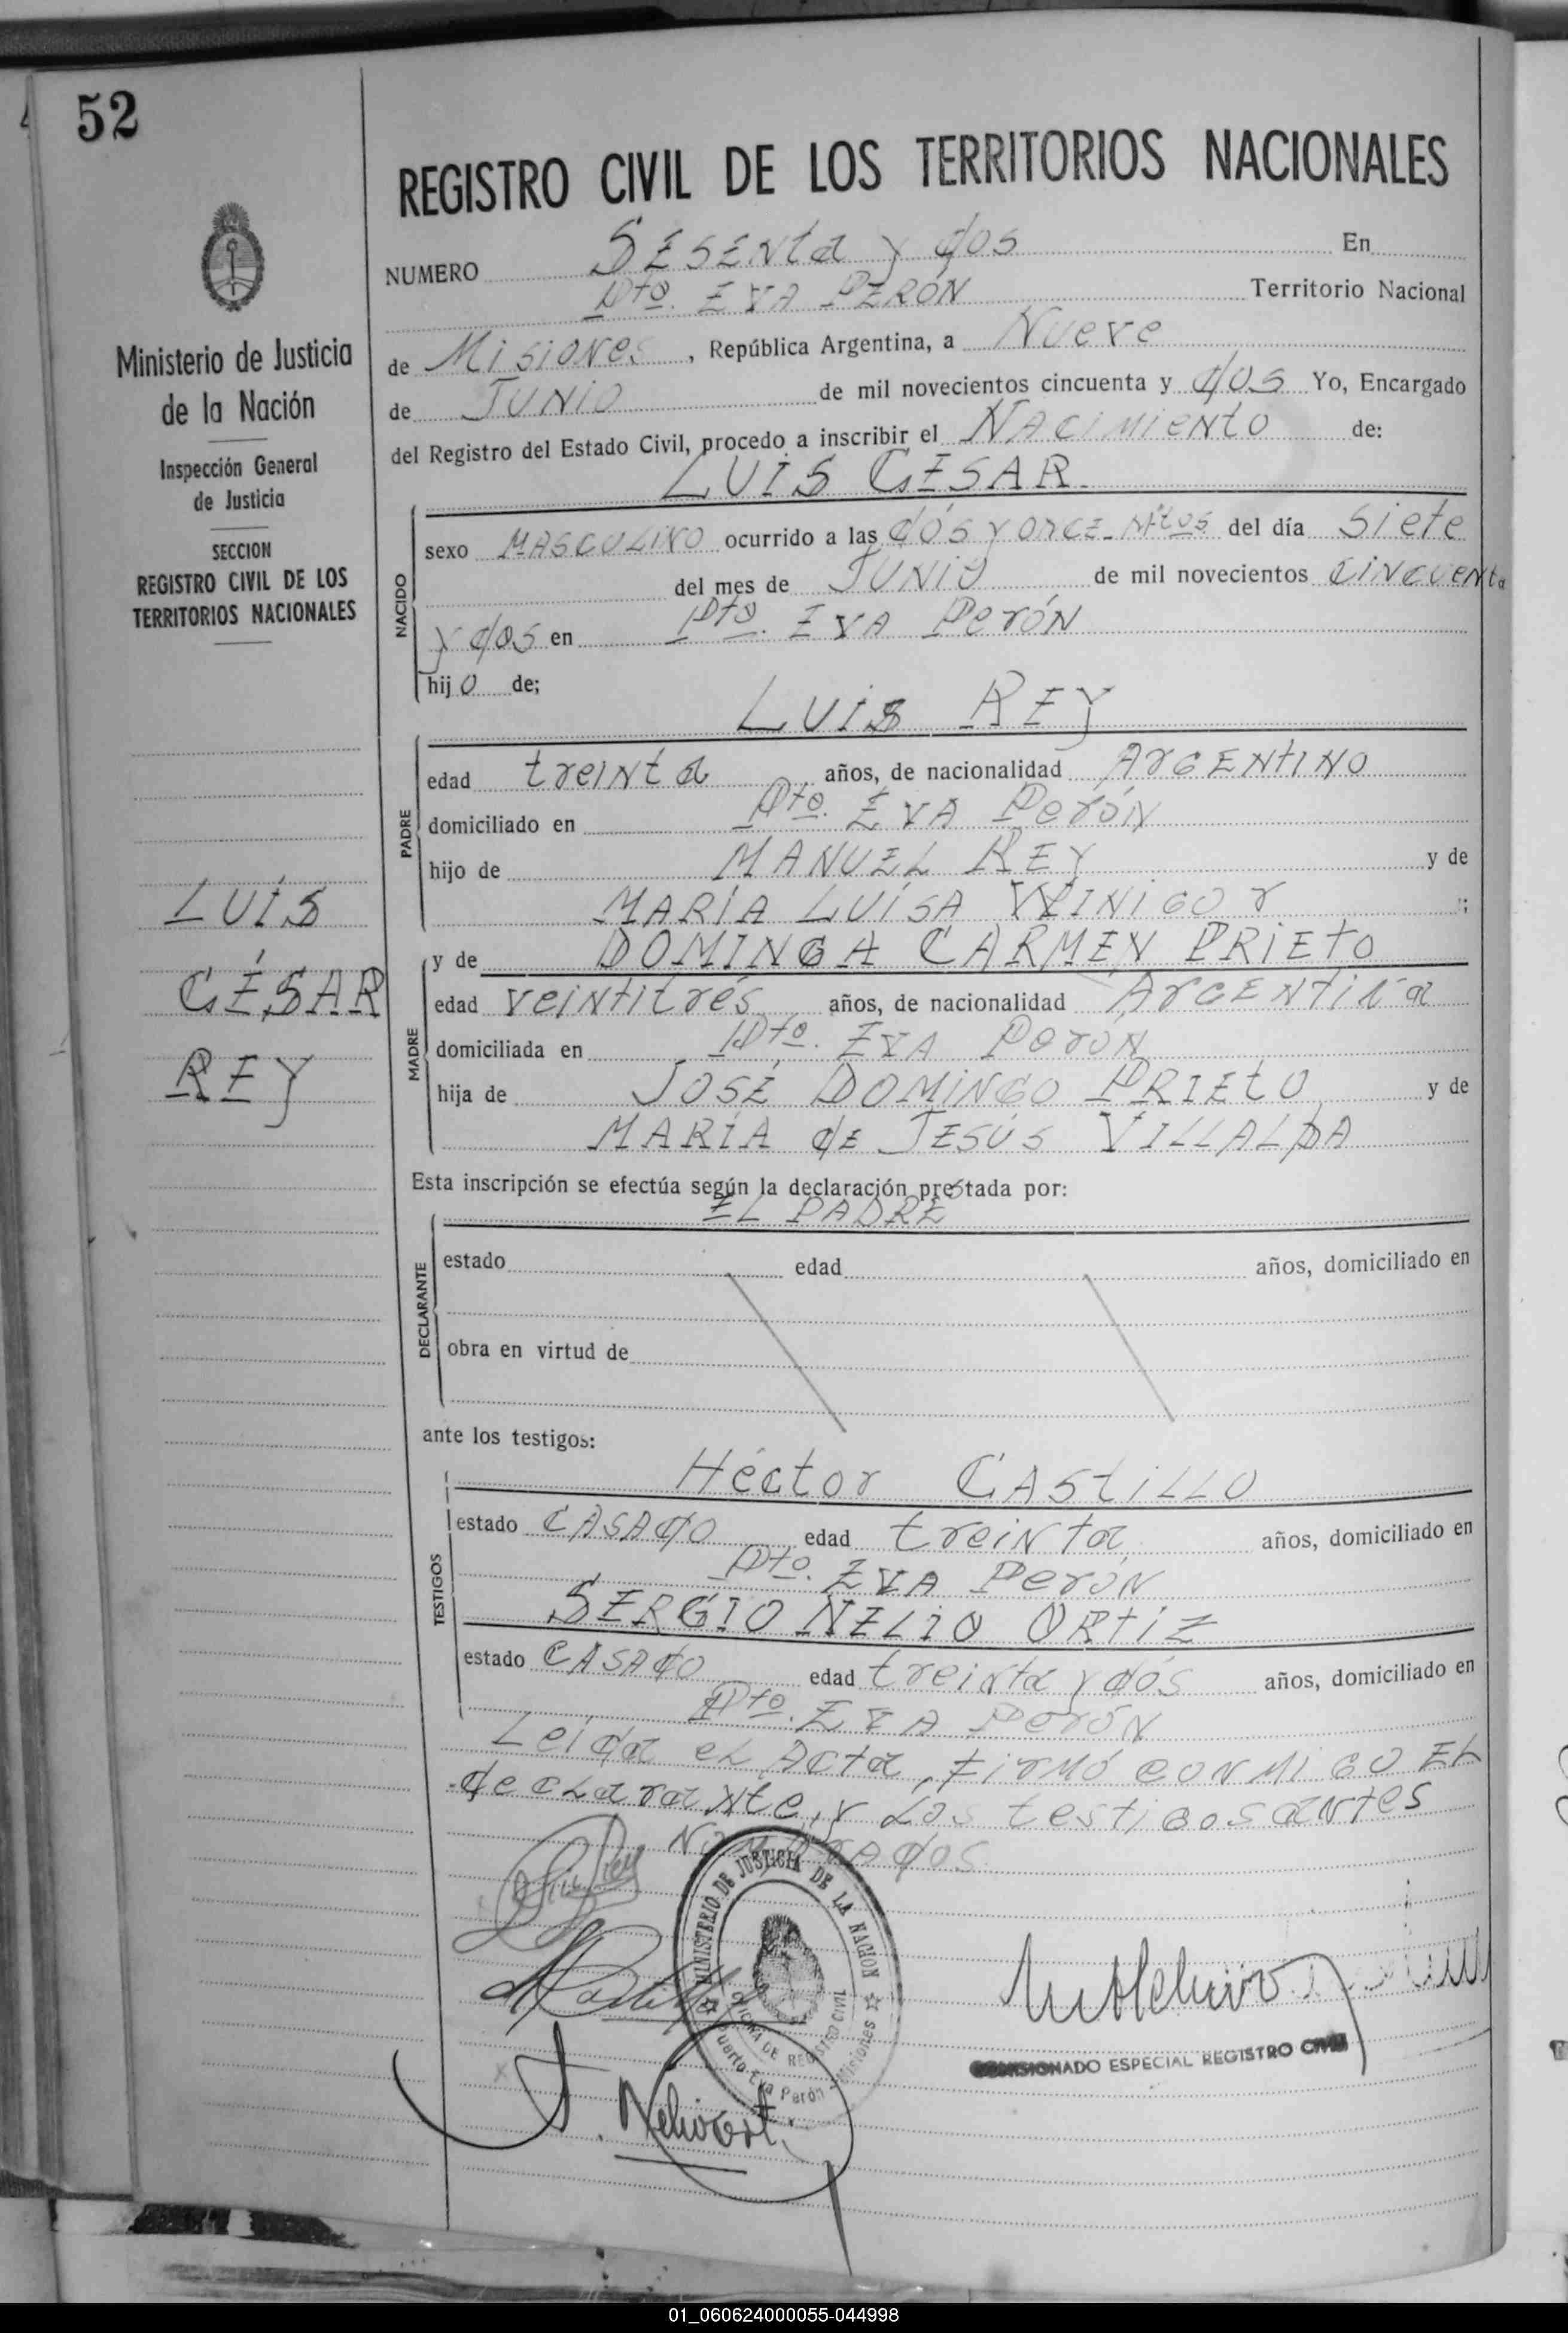 52
Ministerio de Justicia
de la Nación
Inspección General
de Justicia
SECCION
REGISTRO CIVIL DE LOS
TERRITORIOS NACIONALES
LUIS
CÉSAR
REY
REGISTRO CIVIL DE LOS TERRITORIOS NACIONALES
NUMERO SESENta y dos En
Pto. EVA PERÓN Territorio Nacional
de MisioNes, República Argentina, a Nueve
de JUNiO de mil novecientos cincuenta y dos Yo, Encargado
del Registro del Estado Civil, procedo a inscribir el NAciMieNto de:
LUIS CÉSAR
NACIDO
sexo MASCULINO ocurrido a las dós y oncE Mtos del día Siete
del mes de JUNiO de mil novecientos CiNcueNta
y dos en Pto. EVA PeróN
hijo de;
LUIS REY
PADRE
edad treiNta años, de nacionalidad ArGENtINO
domiciliado en Pto. EVA PeróN
hijo de MANUEL REY y de
MARÍA LUÍSA ;
y de DOMINGA CARMEN PRiEtO
MADRE
edad veiNtitrés años, de nacionalidad ArGENtiNa
domiciliada en Pto. EVA PeróN
hija de JOSÉ DOMiNGO PRIEtO y de
MARÍA dE JESÚS VILLALBA
Esta inscripción se efectúa según la declaración prestada por:
EL PADRE
DECLARANTE
estado edad años, domiciliado en
obra en virtud de
ante los testigos:
Héctor CAStiLLO
TESTIGOS
estado CASAdO edad treiNta años, domiciliado en
Pto. EVA PeróN
SERGIO NELIO ORtiZ
estado CASAdO edad treiNta y dós años, domiciliado en
Pto. EVA PeróN
Leida eL Acta, firMó coNMiGO EL
decLaraNte, y Los testiGos aNtes
NOMBRAdOS.
MINISTERIO DE JUSTICIA DE LA NACION
OFICINA DE REGISTRO CIVIL
Puerto Eva Perón - Misiones
COMISIONADO ESPECIAL REGISTRO CIVIL
01_060624000055-044998